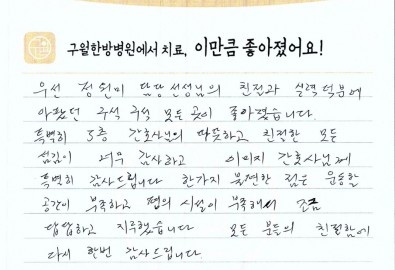 구월한방병원에서 치료, 이만큼 좋아졌어요!
우선 정원미 담당 선생님의 친절과 실력 덕분에
아팠던 구석 구석 모든 곳이 좋아졌습니다.
특백히 5층 간호사님의 따뜻하고 친절한 모든
섬김이 매우 감사하고 이미지 간호사님께
특백히 감사드립니다 한가지 불편한 점은 운동할
공간이 부족하고 탭의 시설이 부족해서 조금
답답하고 지루했습니다 모든 분들의 친절함에
다시 한번 감사드립니다.